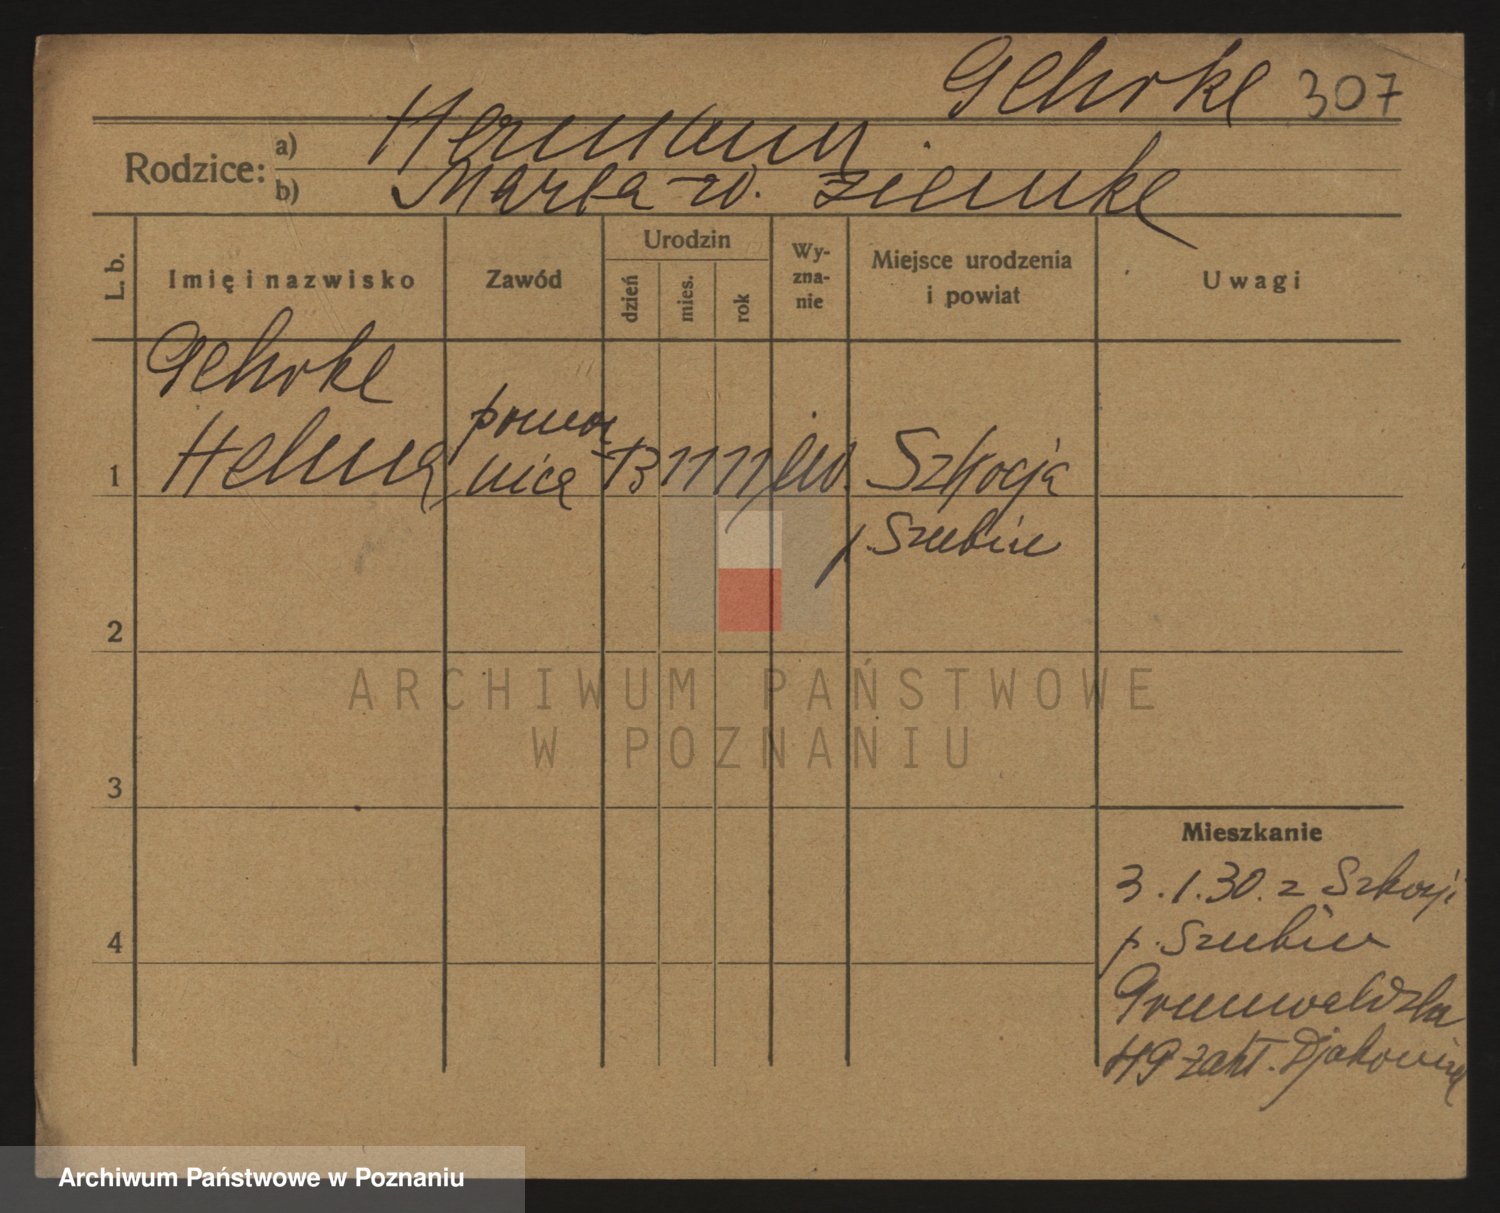 Gehrke 307
Rodzice:
a) Hermann
b) Marta zd. Ziemke
L. b.
Imię i nazwisko
Zawód
Urodzin
dzień
mies.
rok
Wy-
zna-
nie
Miejsce urodzenia
i powiat
Uwagi
Gehrke
Helma
pomoc
nica
13 11 11 ew. Szkocja
p. Szubin
1
2
3
4
Mieszkanie
3.1.30. z Szkocji
p. Szubin
Grunwaldzka
49 zakł. Djakonise
ARCHIWUM PAŃSTWOWE
W POZNANIU
Archiwum Państwowe w Poznaniu